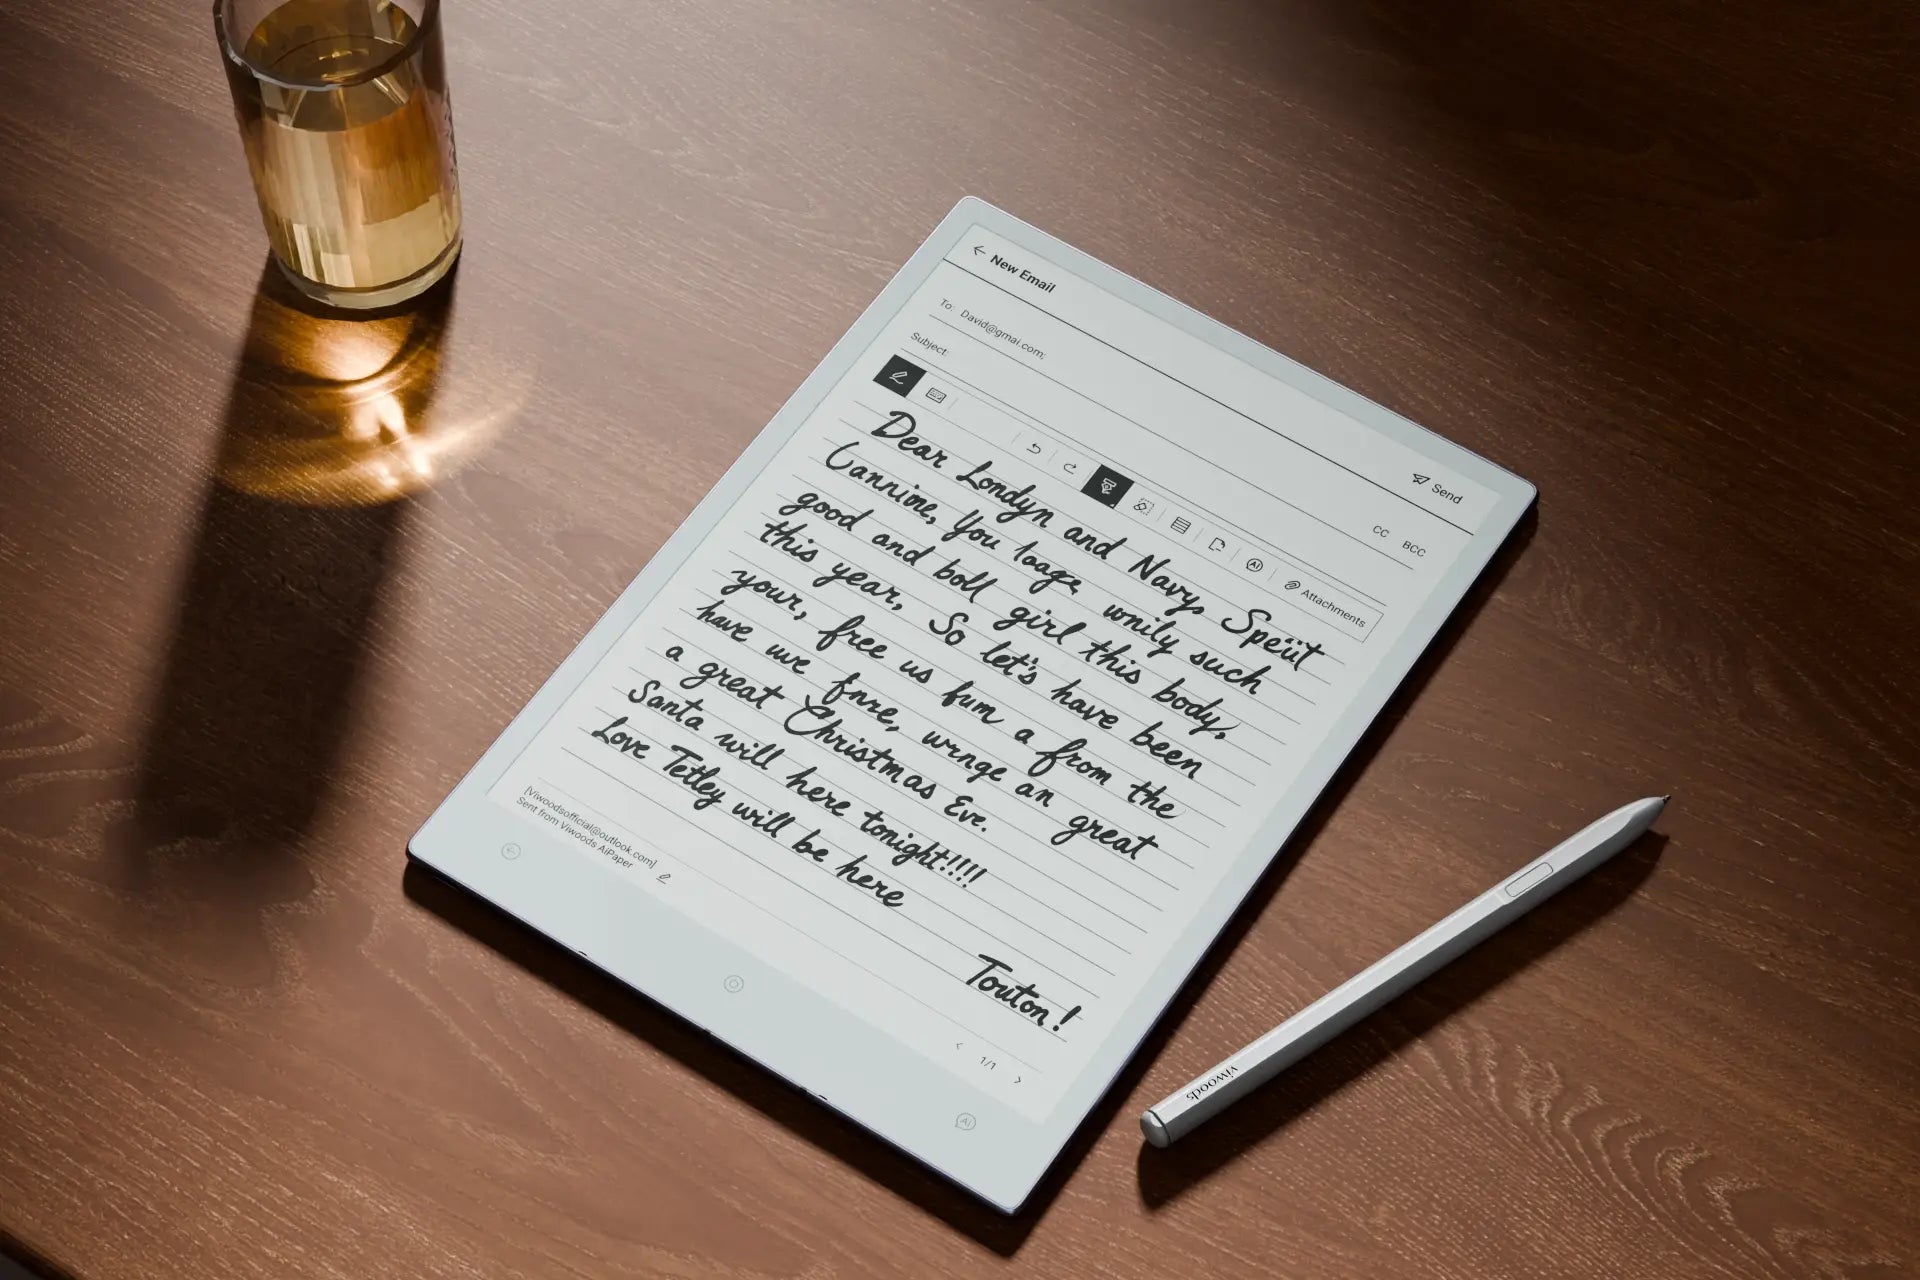 ← New Email
Send
To: David@gmai.com;
CC BCC
Subject:
AI Attachments
Dear Londyn and Navy, Speüt
Cannime, you loage wnily such
good and boll girl this body,
this year, So let's have been
your, free us fum a from the
have uve fnre, wrnge an great
a great Christmas Eve.
Santa will here tonight!!!!
Love Tetley will be here
Touton!
[Viwoodsofficial@outlook.com]
Sent from Viwoods AiPaper
< 1/1 >
AI
viwoods